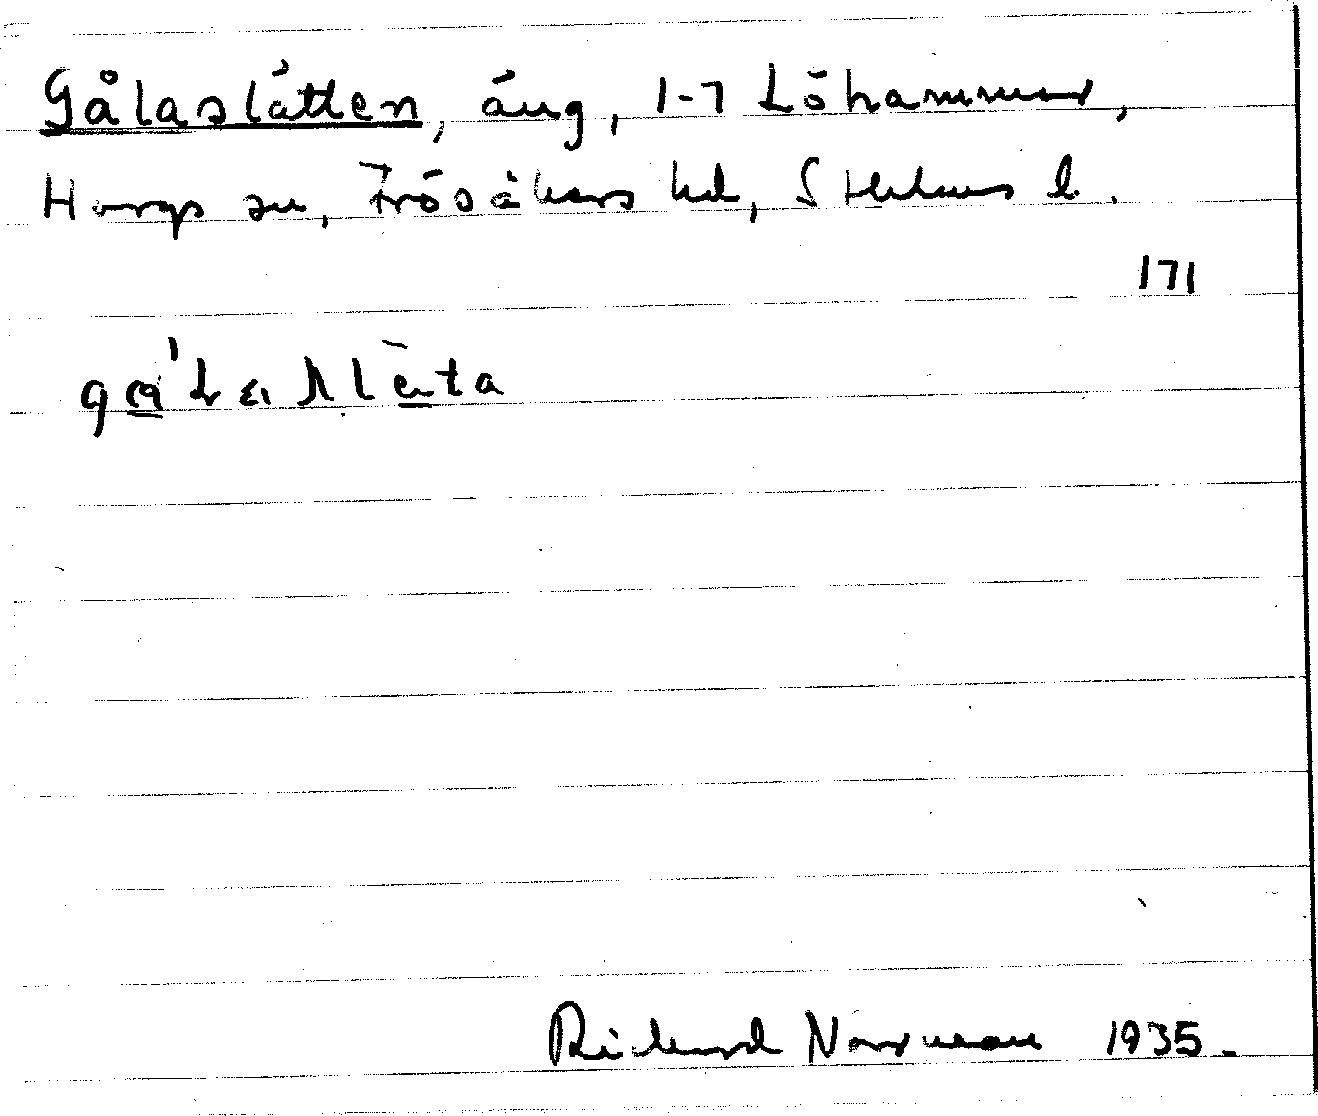 Gålaslätten, äng, 1-7 Löhammar,
Hargs sn, Frösåkers hd, Sthlms l.
171
Rickard Norrman 1935.